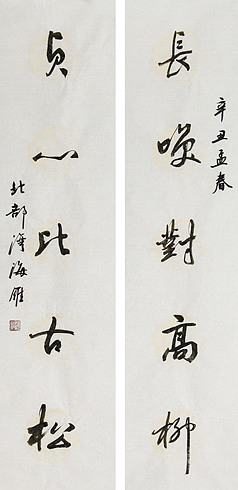 長嘆對高柳
辛丑孟春
貞心比古松
北部湾海